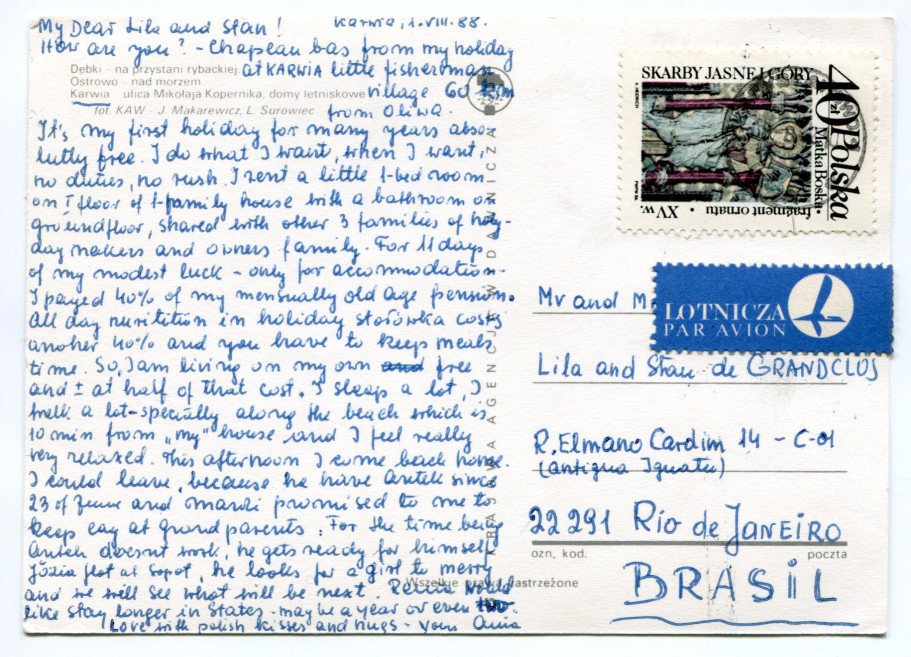 My Dear Lila and Stan!
Karwia, 1.VIII.88.
How are you? - Chapeau bas from my holiday
at KARWIA little fisherman
village 60 km
from Oliwa.
Dębki - na przystani rybackiej
Ostrowo - nad morzem
Karwia ulica Mikołaja Kopernika, domy letniskowe
fot. KAW - J. Makarewicz, L. Surowiec
It's my first holiday for many years abso
lutly free. I do what I want, when I want,
no duties, no rush. I rent a little 1-bed room
on I floor of 1-family house with a bathroom on
groundfloor, shared with other 3 families of holy-
day makers and owners family. For 11 days
of my modest luck - only for accommodation -
I payed 40% of my mensually old age pension.
All day nuritition in holiday stołówka costs
another 40% and you have to keep meals
time. So, I am living on my own and free
and ± at half of that cost. I sleep a lot, I
walk a lot - specially along the beach which is
10 min from „my" house and I feel really
very relaxed. This afternoon I come back home.
I could leave, because he have Antek since
23 of June and promised to me to
keep at grand parents. For the time being
Antek doesn't work, he gets ready for himself
Józia flat at Sopot, he looks for a girl to merry
and we well see what will be next. would
like stay longer in States - maybe a year or even two.
Love with polish kisses and hugs - yours Ania
KRAJOWA AGENCJA WYDAWNICZA
Wszelkie prawa zastrzeżone
SKARBY JASNEJ GÓRY
40 zł Polska
Matka Boska •
fragment ornatu • XV w.
LOTNICZA
PAR AVION
Mr and M
Lila and Stan de GRANDCLOS
R. Elmano Cardim 14 - C-01
(antigua Iguatu)
22291 Rio de JANEIRO
ozn. kod. poczta
BRASIL